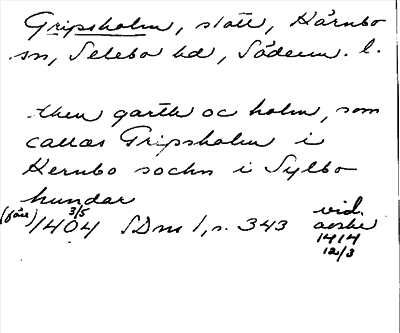 Gripsholm, slott, Kärnbo
sn, Selebo hd, Söderm. l.
then garth oc holm, som
callas Gripsholm i
Kernbo sochn i Sylbo
hundar
(före) 3/5 1404 SDns 1, s. 343 vid.
avskr
1414
12/3